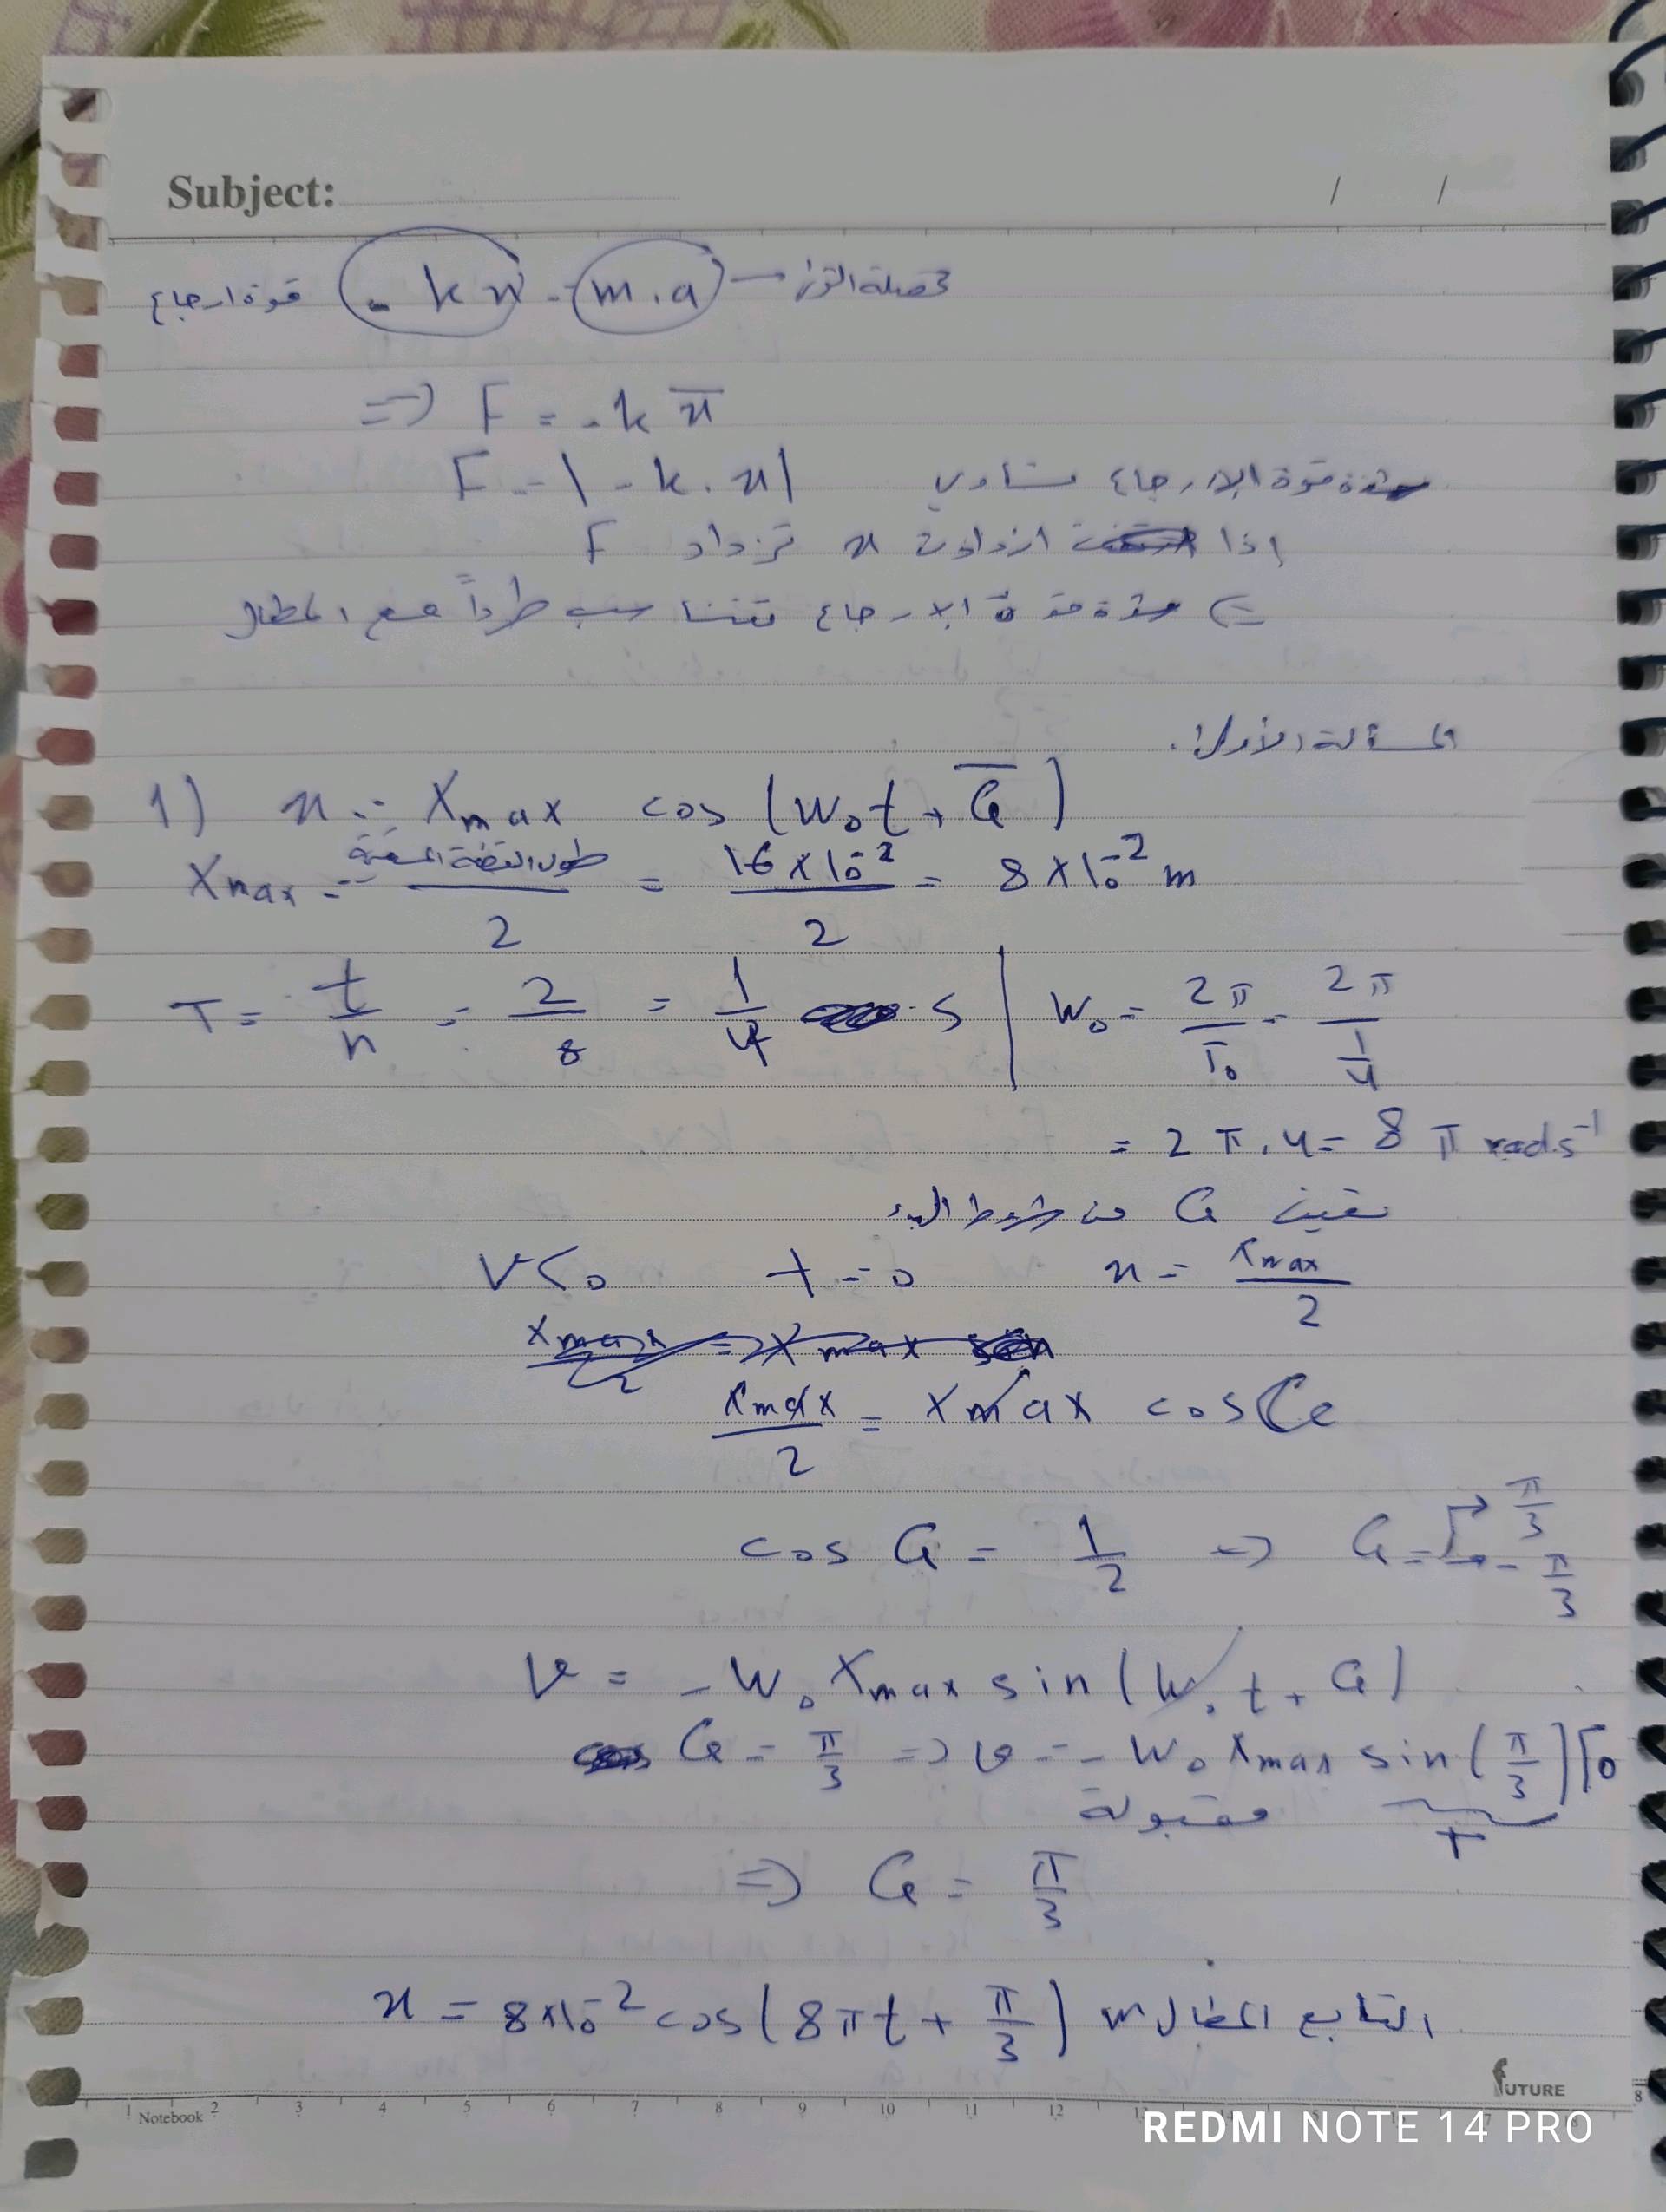 Subject: / /
قوة ارجاع - k x = m.a → محصلة القوى
⇒ F = - k x̄
شدة قوة الإرجاع تساوي F = | - k . x |
إذا ازدادت x تزداد F
⇐ شدة قوة الارجاع تتناسب طرداً مع المطال
المسألة الأولى:
1) x = Xmax cos (ω₀t + φ̄)
Xmax = طول القطعة المستقيمة / 2 = 16 × 10⁻² / 2 = 8 × 10⁻² m
T = t / n = 2 / 8 = 1 / 4 s | ω₀ = 2π / T₀ = 2π / (1/4)
= 2π . 4 = 8π rad.s⁻¹
نعين φ من شروط البدء
v < 0 t = 0 x = Xmax / 2
Xmax / 2 = Xmax cos φ
cos φ = 1 / 2 ⇒ φ = π/3 → - π/3
v = - ω₀ Xmax sin (ω₀ t + φ)
φ = π/3 ⇒ v = - ω₀ Xmax sin (π/3) < 0
مقبولة +
⇒ φ = π/3
التابع المطال x = 8×10⁻² cos (8πt + π/3) m
FUTURE
Notebook 1 2 3 4 5 6 7 8 9 10 11 12
REDMI NOTE 14 PRO